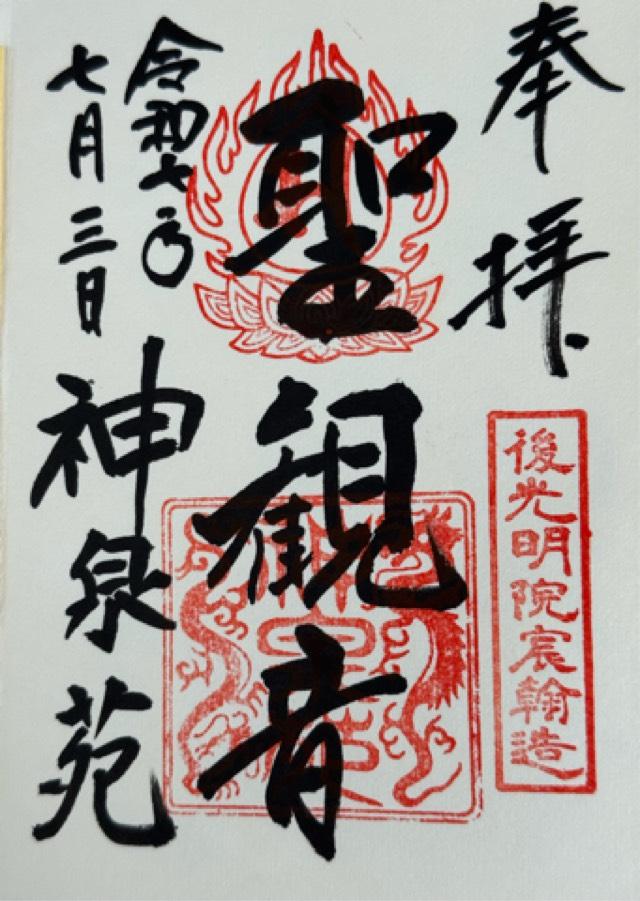 奉拝
後光明院宸翰造
聖観音
令和七年
七月三日
神泉苑